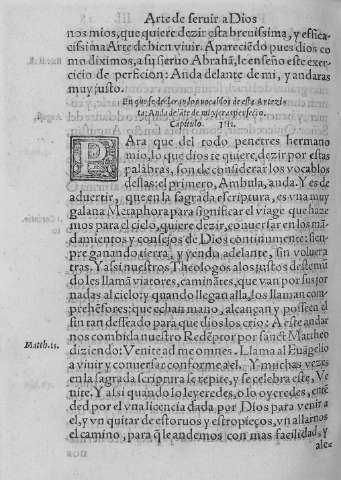 Arte de seruir a Dios
nos mios, que quiere dezir esta breuissima, y effica-
cissima Arte de bien viuir. Apareciēdo pues dios co
mo diximos, a su sieruo Abrahā, le enseño este exer-
cicio de perficion: Anda delante de mi, y andaras
muy justo.
En que se declarā los vocablos de esta Artezi-
ta: Anda delāte de mi, y seras perfecto.
Capitulo. III.
PAra que del todo penetres hermano
mio, lo que dios te quiere, dezir por estas
palabras, son de considerar los vocablos
dellas: el primero, Ambula, anda. Y es de
aduertir, que en la sagrada escriptura, es vna muy
galana Metaphora para significar el viage que haze
mos para el cielo, quiere dezir, conuersar en los mā-
damientos y consejos de Dios continuamente: siem-
pre ganando tierra, y yendo adelante, sin voluer a
tras. Y assi nuestros Theologos a los justos deste mū
do les llamā viatores, caminātes, que van por sus jor
nadas al cielo: y quando llegan alla, los llaman com-
prehēsores: que echan mano, alcançan y posseen el
sin tan desseado para que dios los crio: A este andar
nos combida nuestro Redēptor por sanct Mattheo
Matth. 11.
diziendo: Venite ad me omnes. Llama al Euāgelio
a viuir y conuersar conforme a el. Y muchas vezes
en la sagrada scriptura se repite, y se celebra este, Ve
nite. Y assi quando lo leyeredes, o lo oyeredes, entē
ded por el vna licencia dada por Dios para venir a
el, y vn quitar de estoruos y estropieços, vn allarnos
el camino, para q̄ le andemos con mas facilidad, y
ale-